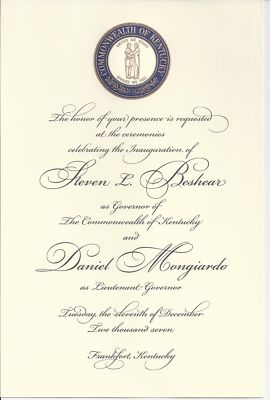 COMMONWEALTH OF KENTUCKY
UNITED WE STAND
DIVIDED WE FALL
The honor of your presence is requested
at the ceremonies
celebrating the Inauguration of
Steven L. Beshear
as Governor of
The Commonwealth of Kentucky
and
Daniel Mongiardo
as Lieutenant Governor
Tuesday, the eleventh of December
Two thousand seven
Frankfort, Kentucky